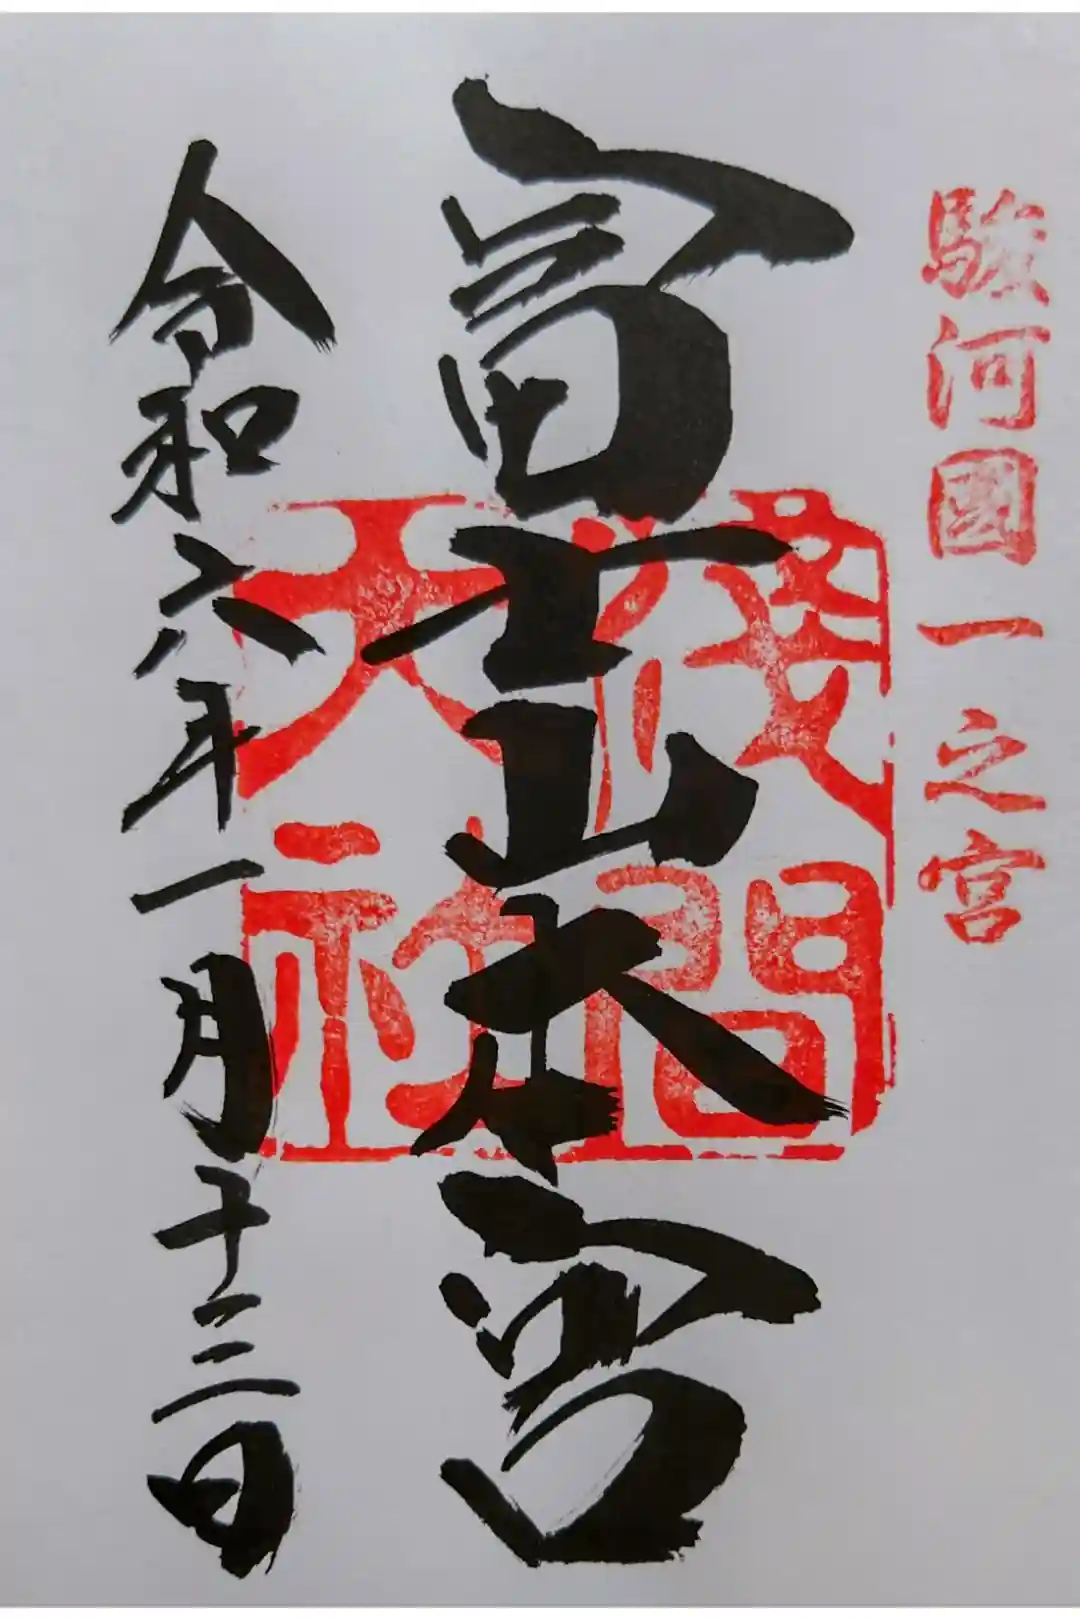 駿河國一之宮
富士山本宮
淺間大社
令和六年一月十三日